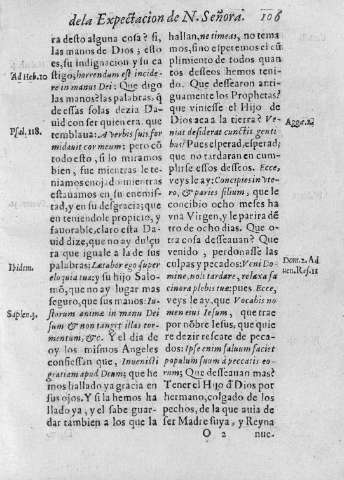 de la Expectacion de N. Señora. 106
ra desto alguna cosa? si,
las manos de Dios; esto
es, su indignacion y su ca
stigo; horrendum est incide
re in manus Dei: Que digo
las manos? las palabras, q̃
dessas solas dezia Da-
uid con ser quien era, que
temblaua: A verbis tuis for
midauit cor meum; pero cõ
todo esto, si lo miramos
bien, fue mientras le te-
niamos enojado mientras
estauamos en su enemis-
tad, y en su desgracia; que
en teniendole propicio, y
fauorable, claro està Da-
uid dize, que no ay dulçu
ra que iguale a la de sus
palabras; Lætabor ego super
eloquia tua; y su hijo Salo-
mõ, que no ay lugar mas
seguro, que sus manos: Iu-
storum animæ in manu Dei
sunt & non tanget illas tor-
mentum, &c. Y el dia de
oy los mismos Angeles
confiessan que, Inuenisti
gratiam apud Deum; que he
mos hallado ya gracia en
sus ojos. Y si la hemos ha
llado ya, y el sabe guar-
dar tambien a los que la
Ad Heb. 10
Psal. 118.
Ibidem.
Sapien. 3.
hallan, ne timeas, no tema
mos, sino esperemos el cũ
plimiento de todos quan
tos desseos hemos teni-
do. Que dessearon anti-
guamente los Prophetas?
que viniesse el Hijo de
Dios aca a la tierra? Ve-
niat desideratus cunctis genti
bus? Pues esperad, esperad;
que no tardaran en cum-
plirse essos desseos. Ecce,
veys le ay: Concipies in vte-
ro, & paries filium, que le
concibio ocho meses ha
vna Virgen, y le parirà dẽ
tro de ocho dias. Que o-
tra cosa desseauan? Que
venido, perdonasse las
culpas y pecados: Veni Do-
mine, noli tardare, relaxa fa
cinora plebis tuæ: pues Ecce,
veys le ay, que Vocabis no
men eius Iesum, que trae
por nõbre Iesus, que quie
re dezir rescate de peca-
dos: Ipse enim saluum faciet
populum suum à peccatis eo-
rum; Que desseauan mas?
Tener el Hijo d̃ Dios por
hermano, colgado de los
pechos, de la que auia de
ser Madre suya, y Reyna
O 2 nue-
Dom. 2. Ad